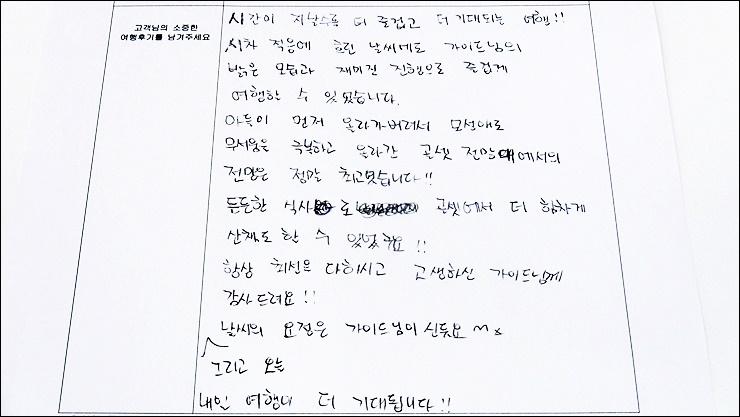 고객님의 소중한
여행후기를 남겨주세요
시간이 지날수록 더 즐겁고 더 기대되는 여행!!
시차 적응에 흐린 날씨에도 가이드님의
밝은 모습과 재미진 진행으로 즐겁게
여행할 수 있었습니다.
아들이 먼저 올라가버려서 모성애로
무서움을 극복하고 올라간 곤셋 전망대에서의
전망은 정말 최고였습니다!!
든든한 식사로 곤셋에서 더 힘차게
산책도 할 수 있었구요!!
항상 최선을 다하시고 고생하신 가이드님께
감사드려요!!
날씨의 요정은 가이드님이신듯요~
그리고 오늘
내일 여행이 더 기대됩니다!!